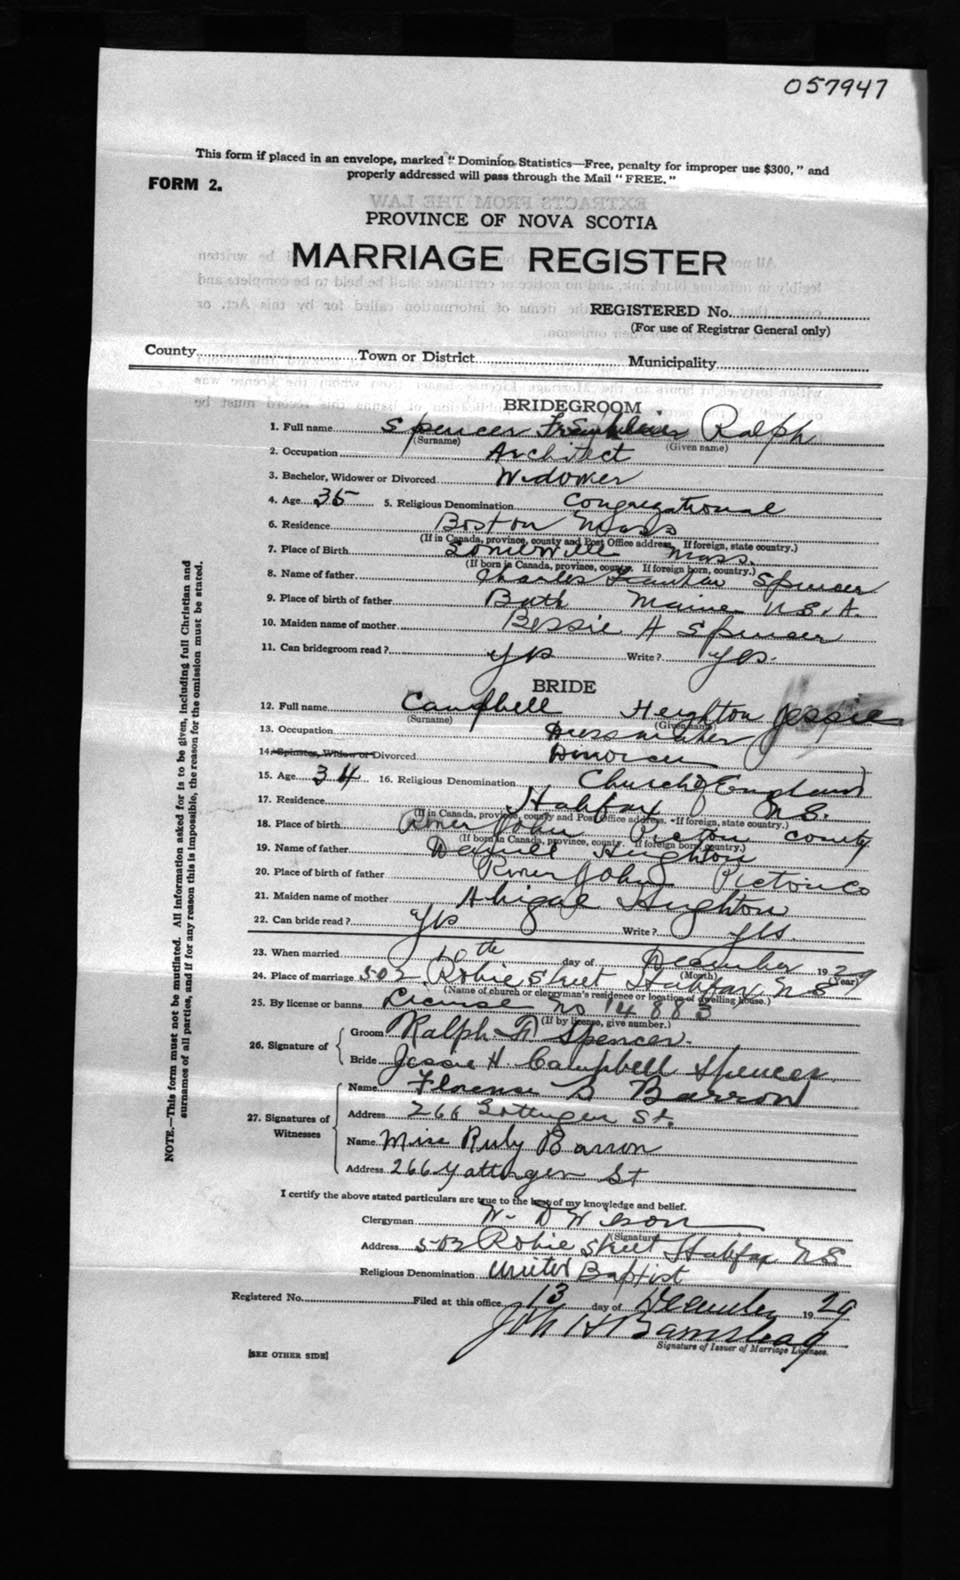 057947
This form if placed in an envelope, marked "Dominion Statistics—Free, penalty for improper use $300," and
properly addressed will pass through the Mail "FREE."
FORM 2.
EXTRACTS FROM THE LAW
PROVINCE OF NOVA SCOTIA
MARRIAGE REGISTER
REGISTERED No.
(For use of Registrar General only)
County Town or District Municipality
BRIDEGROOM
1. Full name Spencer Ralph
(Surname) (Given name)
2. Occupation Architect
3. Bachelor, Widower or Divorced Widower
4. Age 35 5. Religious Denomination Congregational
6. Residence Boston Mass
(If in Canada, province, county and Post Office address. If foreign, state country.)
7. Place of Birth Somerville Mass.
(If born in Canada, province, county. If foreign born, country.)
8. Name of father Charles Spencer
9. Place of birth of father Bath Maine U.S.A.
10. Maiden name of mother Bessie A Spencer
11. Can bridegroom read? yes Write? yes.
BRIDE
12. Full name Campbell Heighton Jessie
(Surname) (Given name)
13. Occupation Dressmaker
14. Spinster, Widow or Divorced Divorcee
15. Age 34 16. Religious Denomination Church of England
17. Residence Halifax N.S.
(If in Canada, province, county and Post Office address. If foreign, state country.)
18. Place of birth River John Pictou County
(If born in Canada, province, county. If foreign born, country.)
19. Name of father Heighton
20. Place of birth of father River John Pictou Co
21. Maiden name of mother Abigal Heighton
22. Can bride read? yes Write? yes.
23. When married 10th day of December 1929
(Month) (Year)
24. Place of marriage 502 Robie Street Halifax NS
(Name of church or clergyman's residence or location of dwelling house.)
25. By license or banns License No 14883
(If by license, give number.)
26. Signature of Groom Ralph F Spencer.
Bride Jessie H. Campbell Spencer
27. Signatures of Witnesses Name Florence Barron
Address 266 Gottingen St.
Name Miss Ruby Barron
Address 266 Gottingen St
I certify the above stated particulars are true to the best of my knowledge and belief.
Clergyman W. D Wilson
(Signature)
Address 502 Robie Street Halifax NS
Religious Denomination United Baptist
Registered No. Filed at this office 13 day of December 1929
Signature of Issuer of Marriage Licenses.
[SEE OTHER SIDE]
NOTE.—This form must not be mutilated. All information asked for is to be given, including full Christian and
surnames of all parties, and if for any reason this is impossible, the reason for the omission must be stated.